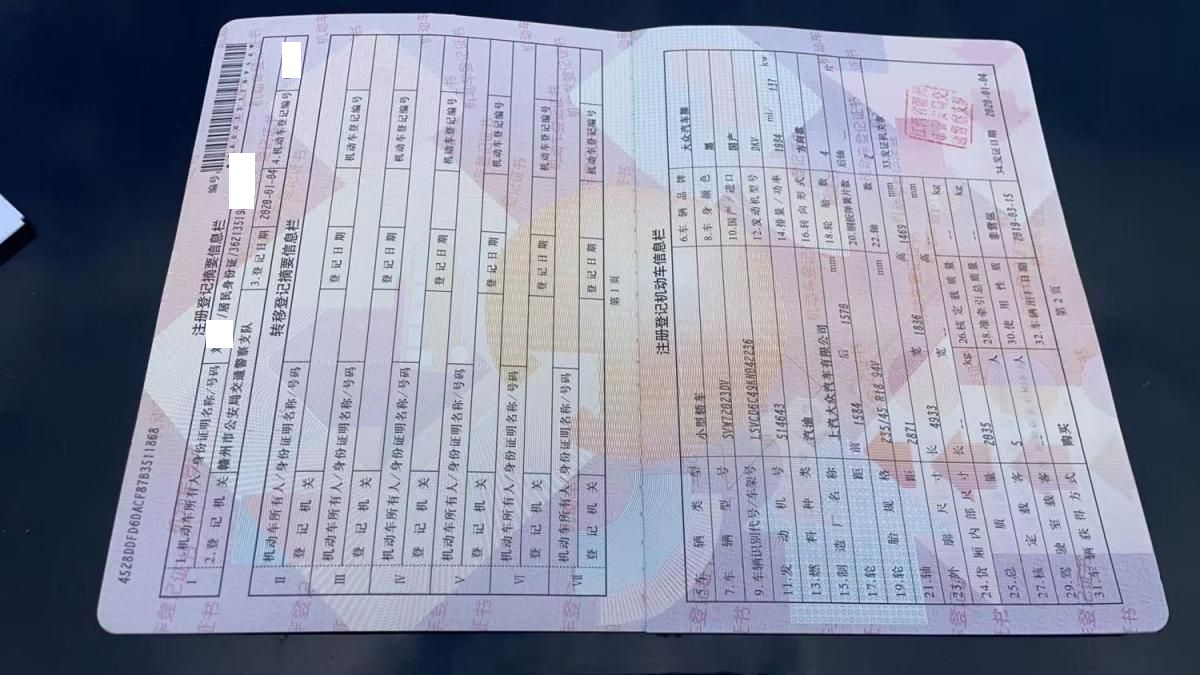 4528DDFD6DACF87B3511868
注册登记摘要信息栏
编号
Ⅰ 1.机动车所有人/身份证明名称/号码 /居民身份证/362135519
2.登记机关 赣州市公安局交通警察支队 3.登记日期 2020-01-04 4.机动车登记编号
转移登记摘要信息栏
Ⅱ 机动车所有人/身份证明名称/号码
登记机关 登记日期 机动车登记编号
Ⅲ 机动车所有人/身份证明名称/号码
登记机关 登记日期 机动车登记编号
Ⅳ 机动车所有人/身份证明名称/号码
登记机关 登记日期 机动车登记编号
Ⅴ 机动车所有人/身份证明名称/号码
登记机关 登记日期 机动车登记编号
Ⅵ 机动车所有人/身份证明名称/号码
登记机关 登记日期 机动车登记编号
Ⅶ 机动车所有人/身份证明名称/号码
登记机关 登记日期 机动车登记编号
第1页
注册登记机动车信息栏
5.车辆类型 小型轿车 6.车辆品牌 大众汽车牌
7.车辆型号 SVW72023DV 8.车身颜色 黑
9.车辆识别代号/车架号 LSVCD6C49KN042236 10.国产/进口 国产
11.发动机号 514643 12.发动机型号 DKV
13.燃料种类 汽油 14.排量/功率 1984 ml/ 137 kw
15.制造厂名称 上汽大众汽车有限公司 16.转向形式 方向盘
17.轮距 前 1584 后 1570 mm 18.轮胎数 4
19.轮胎规格 235/45 R18 94V 20.钢板弹簧片数 后轴 -- 片
21.轴距 2871 mm 22.轴数 2
23.外廓尺寸 长 4933 宽 1836 高 1469 mm 33.发证机关章
24.货厢内部尺寸 长 -- 宽 -- 高 -- mm
25.总质量 2035 kg 26.核定载质量 -- kg
27.核定载客 5 人 28.准牵引总质量 -- kg
29.驾驶室载客 -- 人 30.使用性质 非营运
31.车辆获得方式 购买 32.车辆出厂日期 2019-03-15 34.发证日期 2020-01-04
第2页